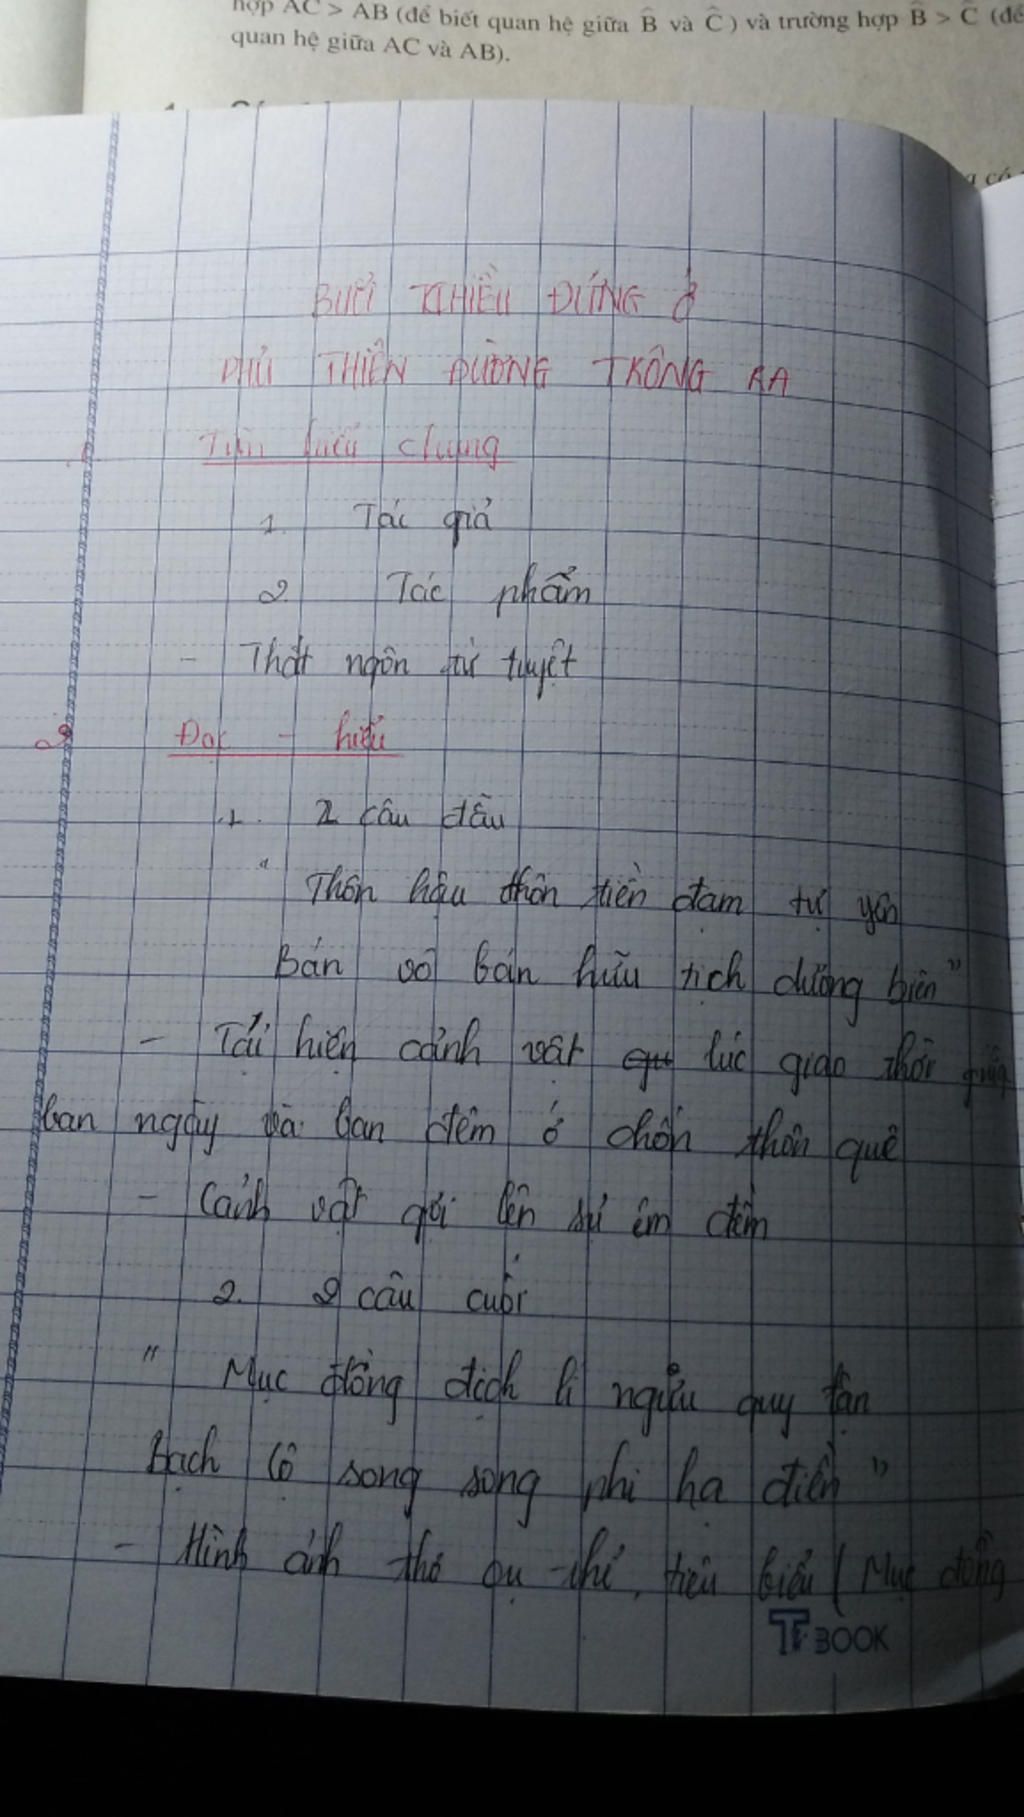 hợp AC > AB (để biết quan hệ giữa B̂ và Ĉ) và trường hợp B̂ > Ĉ (để
quan hệ giữa AC và AB).
có
BUỔI CHIỀU ĐỨNG Ở
PHỦ THIÊN ĐƯỜNG TRÔNG RA
Tìm hiểu chung
1. Tác giả
2. Tác phẩm
- Thất ngôn tứ tuyệt
2 Đọc - hiểu
1. 2 câu đầu
"Thôn hậu thôn tiền đạm tự yên
Bán vô bán hữu tịch dương biên"
- Tái hiện cảnh vật lúc giao thời giữa
ban ngày và ban đêm ở chốn thôn quê
- Cảnh vật gợi lên sự êm đềm
2. 2 câu cuối
" Mục đồng địch lí ngưu quy tận
Bạch lộ song song phi hạ điền"
- Hình ảnh thơ cụ thể, tiêu biểu (Mục đồng
TT BOOK